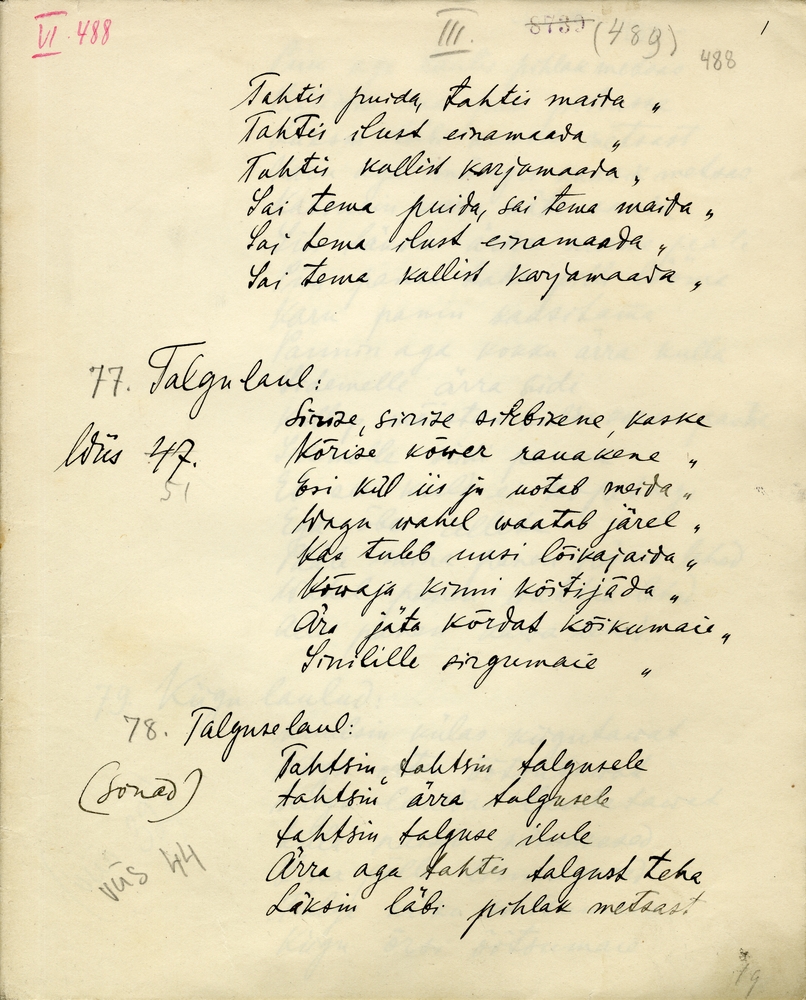 VI 488 III. 8739 (489) 488 1
Tahtis puida, tahtis maida "
Tahtis ilust einamaada "
Tahtis kallist karjamaada "
Sai tema puida, sai tema maida "
Sai tema ilust einamaada "
Sai tema kallist karjamaada "
77. Talgulaul:
Sirise, sirise sirbikene, kaske
Wiis 47. Kõrise kõwer rauakene "
51 Esi küll iis ju uotab meida "
Wagu wahel waatab järel "
Kas tuleb uusi lõikajaida "
Kõwaja kinni köitijäda "
Ära jäta kõrdat kõikumaie "
Sinilille sirgumaie "
78. Talguselaul:
(sõnad) Tahtsin, tahtsin talgusele
tahtsin ärra talgusele
tahtsin talguse ilule
viis 44 Ärra aga tahtis talgust teha
Läksin läbi pihlak metsast